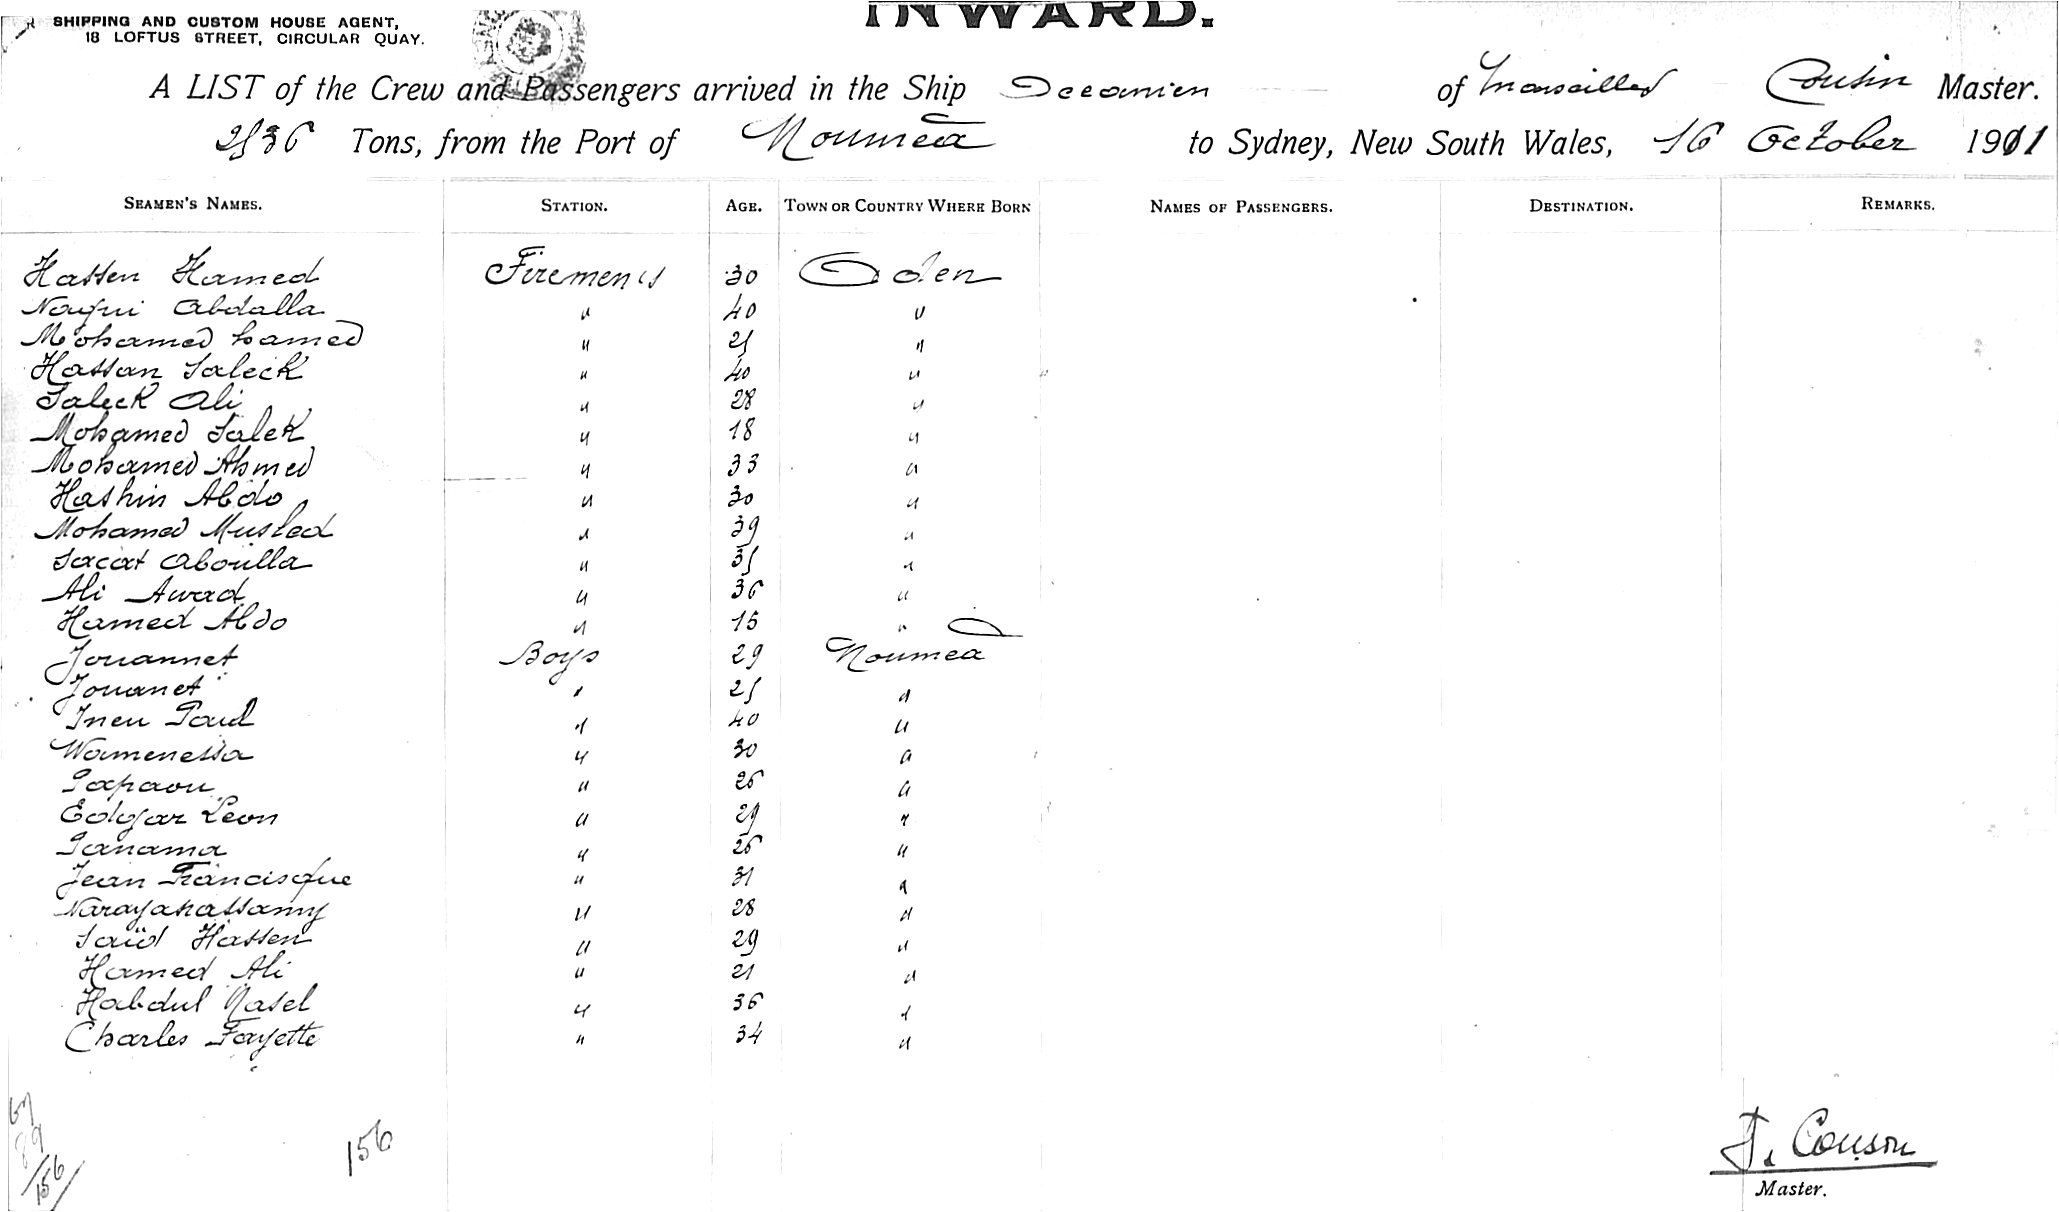 SHIPPING AND CUSTOM HOUSE AGENT,
18 LOFTUS STREET, CIRCULAR QUAY.
INWARD.
A LIST of the Crew and Passengers arrived in the Ship Oceanien of Marseilles Cousin Master.
Tons, from the Port of Noumea to Sydney, New South Wales, 16 October 1911
SEAMEN'S NAMES. STATION. AGE. TOWN OR COUNTRY WHERE BORN NAMES OF PASSENGERS. DESTINATION. REMARKS.
Hassen Hamed Firemen's 30 Aden
Abdalla " 40 "
Mohamed hamed " 25 "
Hassan Saleck " 40 "
Saleck Ali " 28 "
Mohamed Salek " 18 "
Mohamed Ahmed " 33 "
Hashin Abdo " 30 "
Mohamed Musled " 39 "
" 35 "
Ali Awad " 36 "
Hamed Abdo " 15 "
Jouannet Boys 29 Noumea
Jouanet " 25 "
Ineu Paul " 40 "
Wamenessa " 30 "
Papaou " 26 "
Edgar Leon " 29 "
Panama " 26 "
Jean Francisque " 31 "
Narayanassamy " 28 "
Saïd Hassen " 29 "
Hamed Ali " 21 "
Habdul Rasel " 36 "
Charles Fayette " 34 "
67
89
156
156
Master.